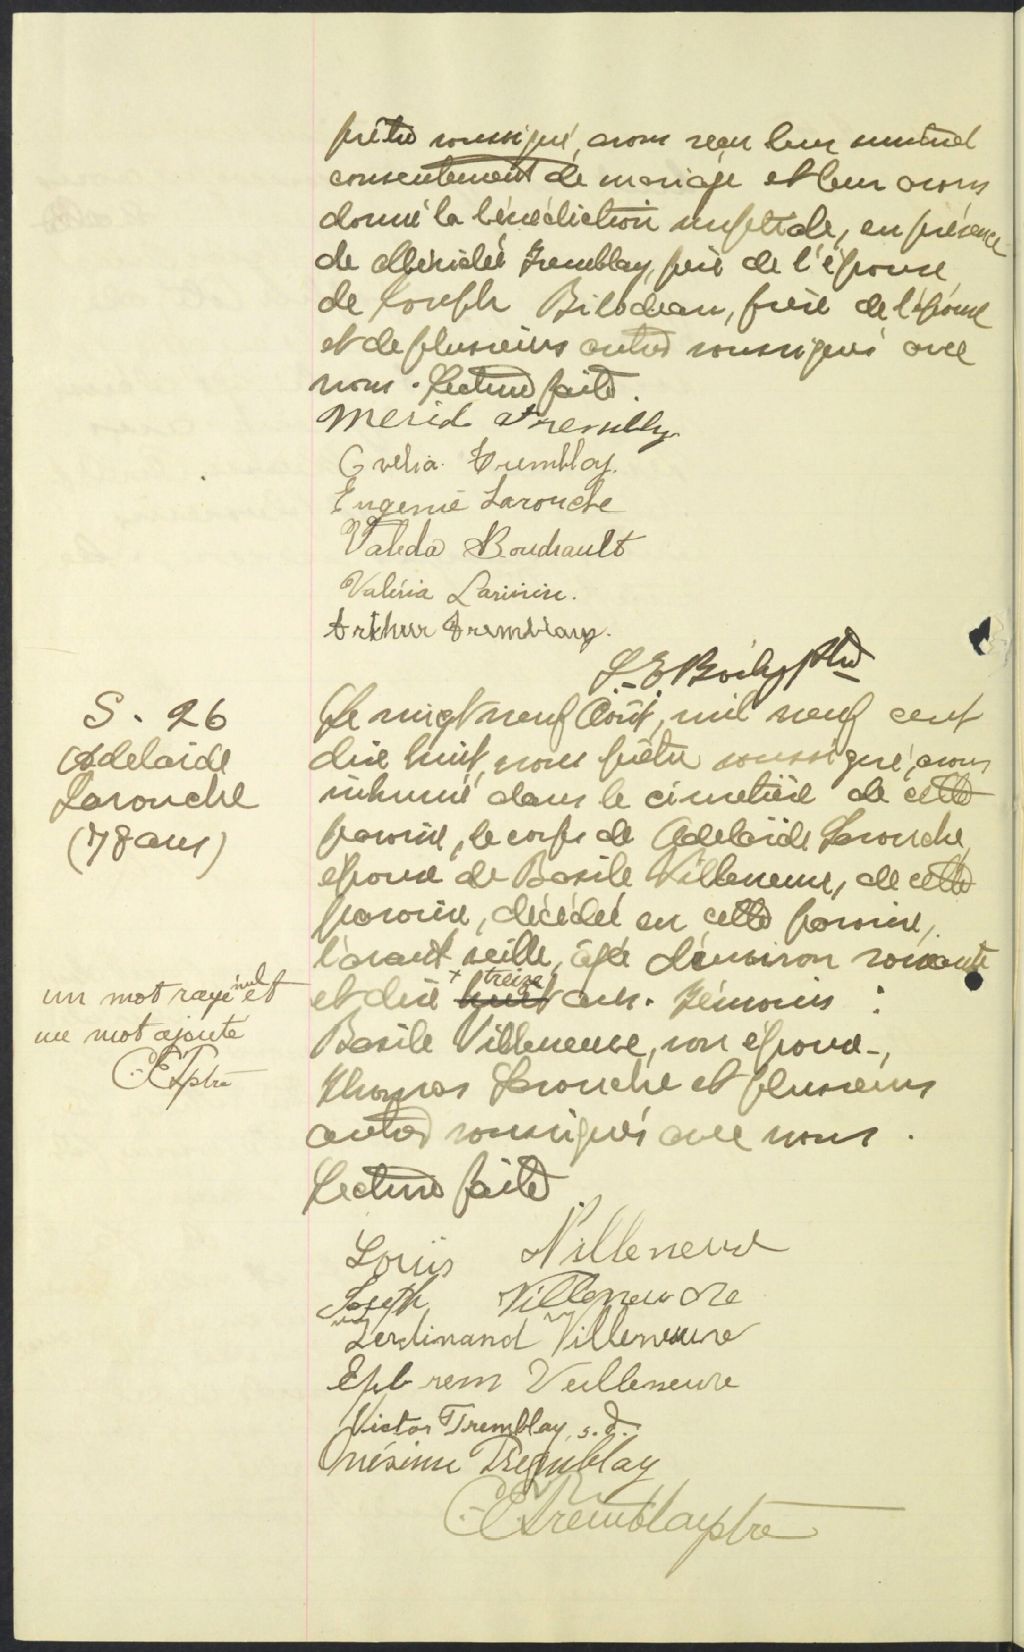 prêtre soussigné, avons reçu leur mutuel
consentement de mariage et leur avons
donné la bénédiction nuptiale, en présence
de Méridé Tremblay, père de l'épouse
de Joseph Bilodeau, frère de l'époux
et de plusieurs autres soussignés avec
nous. Lecture faite.
Merid Tremblay
Tremblay.
Eugenie Larouche
Valéda Boudreault
Valéria
Arthur Tremblay.
L. E. Boily ptre
S. 26
Adelaide
Larouche
(78 ans)
Le vingt neuf Août, mil neuf cent
dix huit, nous prêtre soussigné, avons
inhumé dans le cimetière de cette
paroisse, le corps de Adelaïde Larouche,
épouse de Basile Villeneuve, de cette
paroisse, décédée en cette paroisse,
l'avant veille, âgée d'environ soixante
et dix + huit treize ans. Témoins :
Basile Villeneuve, son époux,
Thomas Larouche et plusieurs
autres soussignés avec nous.
Lecture faite
un mot rayé nul et
un mot ajouté
C.E.T. ptre
Louis Villeneuve
Joseph Villeneuve
Ferdinand Villeneuve
Ephrem Villeneuve
Victor Tremblay, s.d.
Onésime Tremblay
C.E. Tremblay ptre